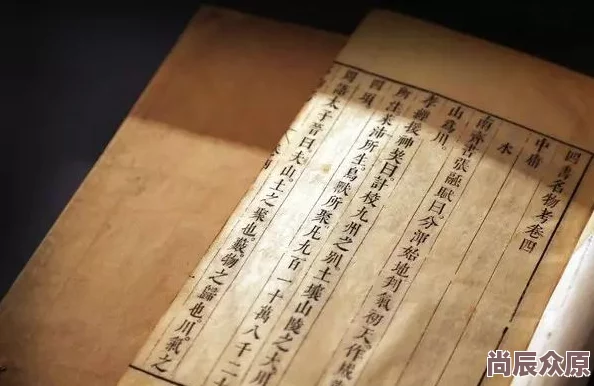 四書名物考卷四
中庸
水
南齊書張融賦曰分渾始地判氣初天作成
山爲川
孝經援神契曰計校九州之别土壤山陵之大川
所生萊沛所生鳥獸所聚凡九百一十萬八千二十
四頃
周語太子晉曰夫山土之聚也藪物之歸也川氣之
尚辰众原